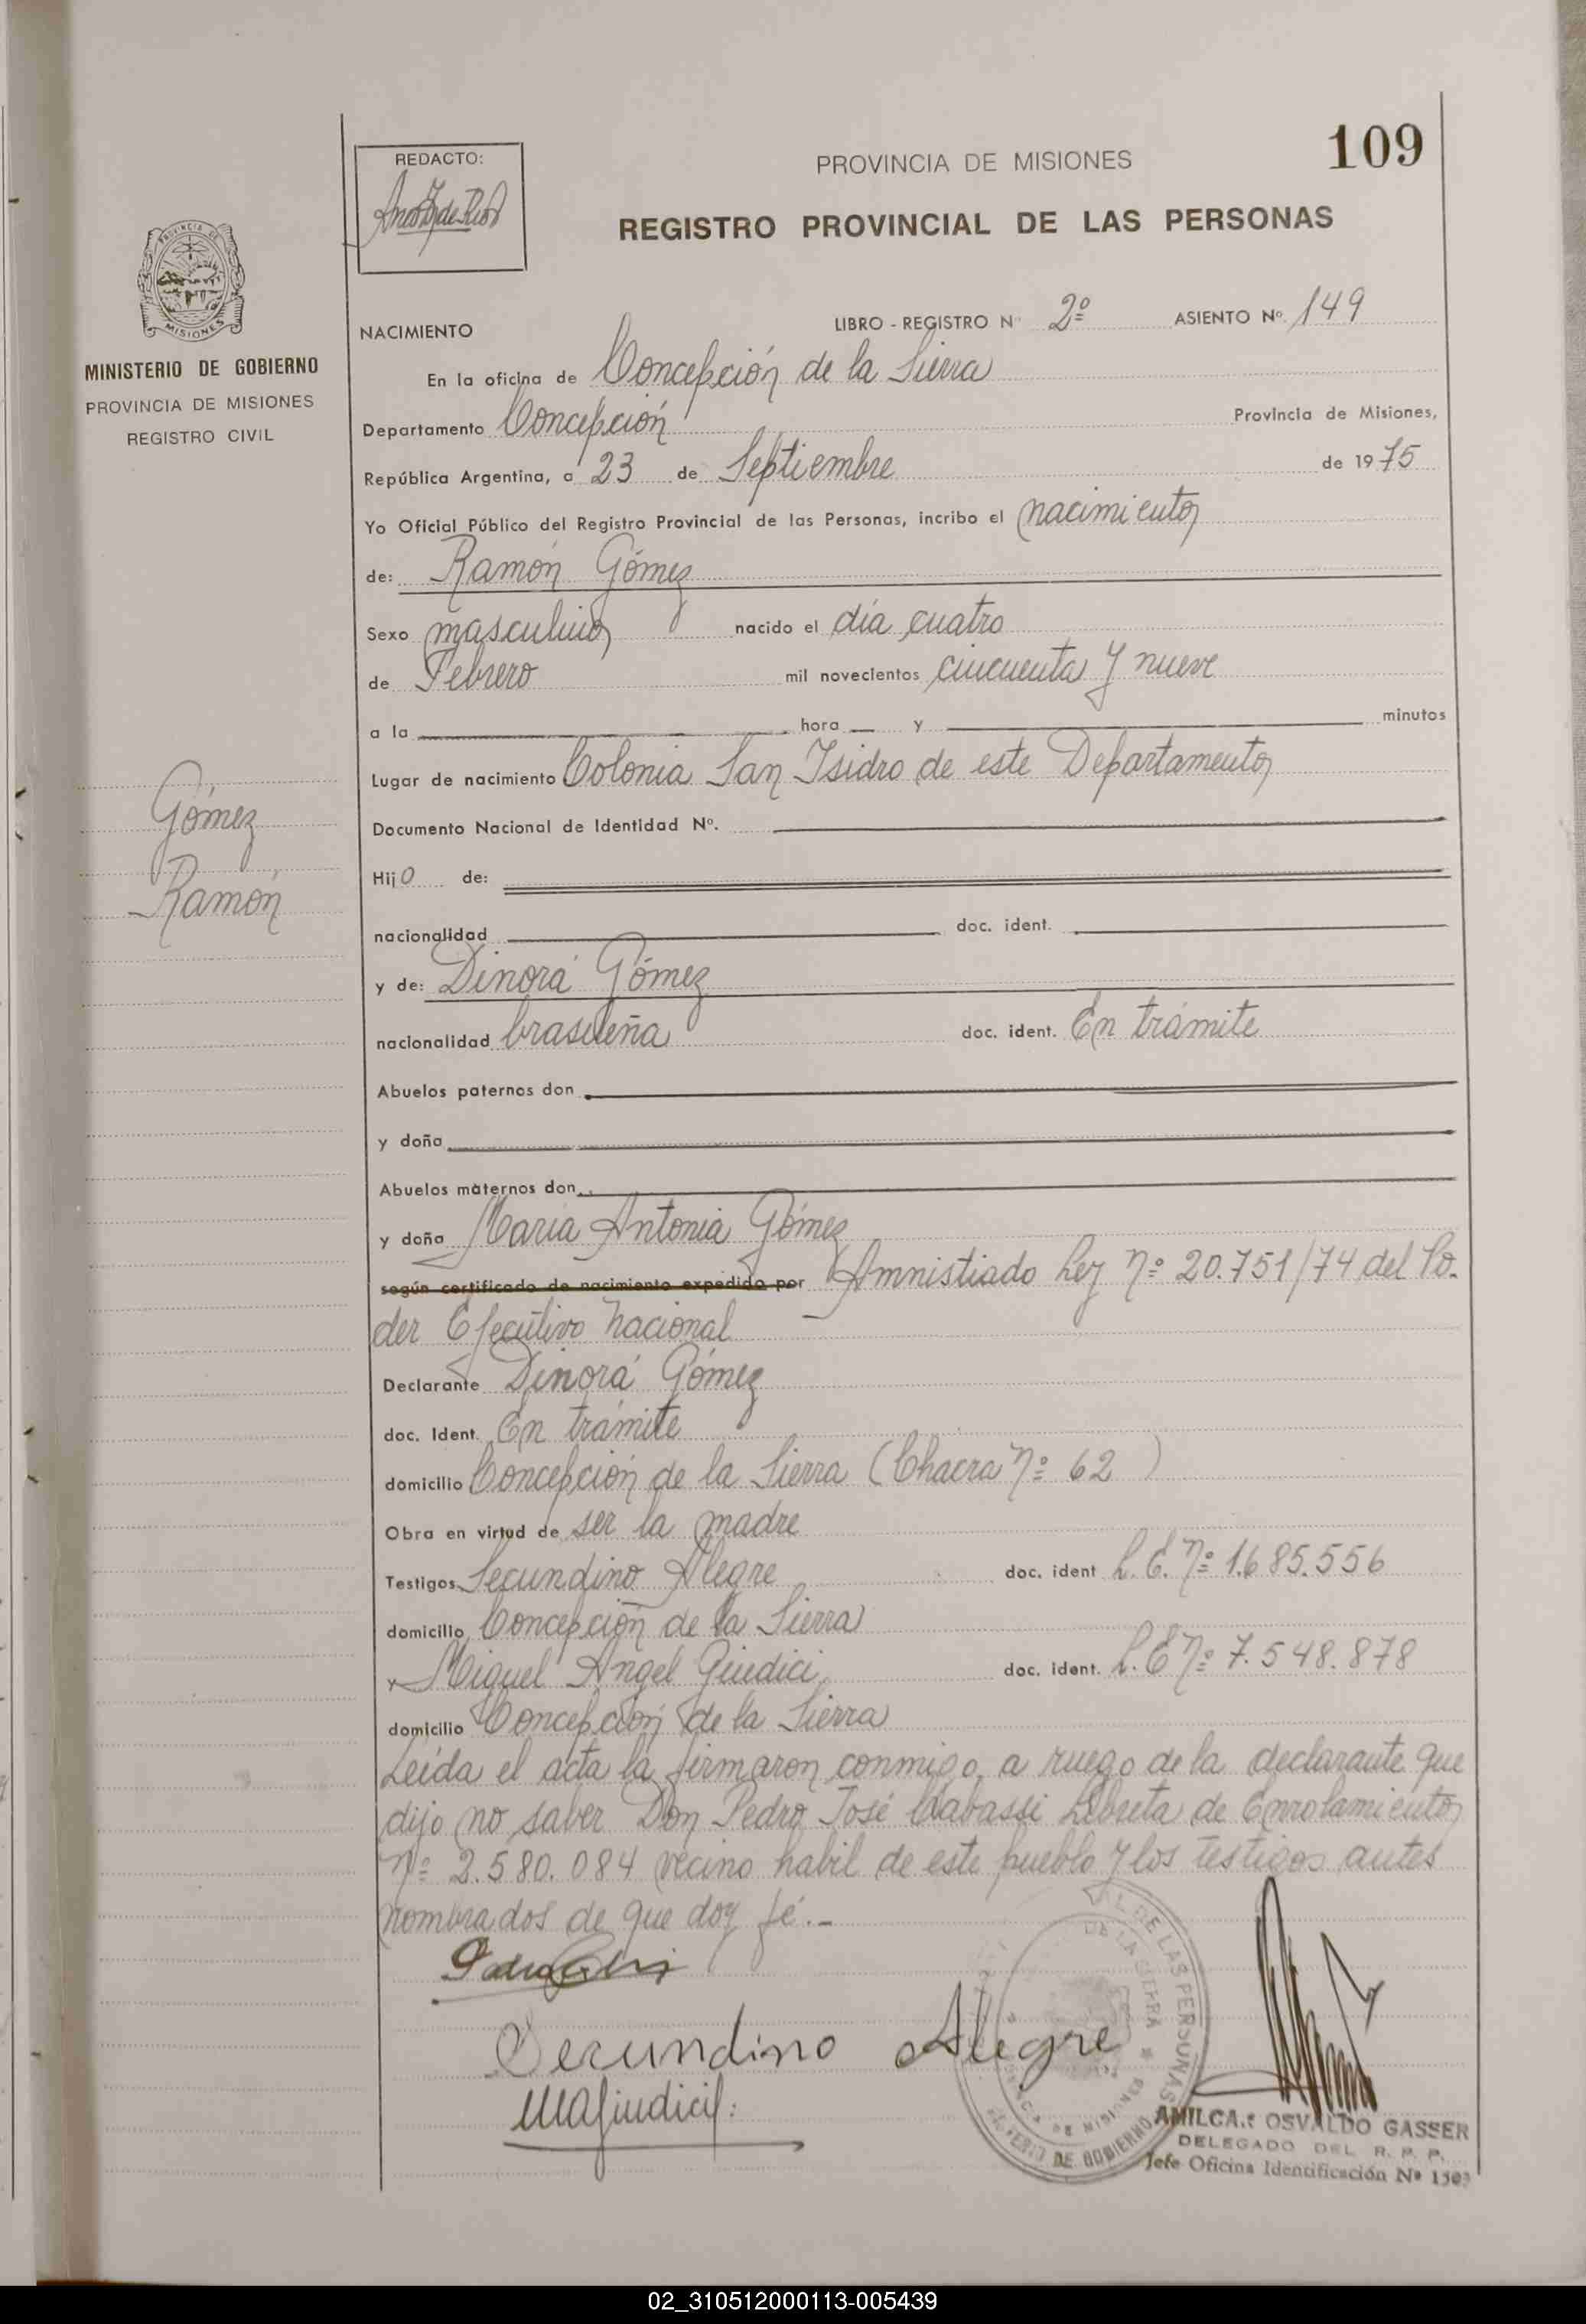 109
REDACTO:
PROVINCIA DE MISIONES
REGISTRO PROVINCIAL DE LAS PERSONAS
MISIONES
MINISTERIO DE GOBIERNO
PROVINCIA DE MISIONES
REGISTRO CIVIL
NACIMIENTO LIBRO - REGISTRO Nº 2º ASIENTO Nº 149
En la oficina de Concepción de la Sierra
Departamento Concepción Provincia de Misiones,
República Argentina, a 23 de Septiembre de 1975
Yo Oficial Público del Registro Provincial de las Personas, incribo el nacimiento
de: Ramón Gómez
Sexo masculino nacido el día cuatro
de Febrero mil novecientos cincuenta y nueve
a la hora y minutos
Lugar de nacimiento Colonia San Isidro de este Departamento
Documento Nacional de Identidad Nº.
Gómez
Ramón
Hijo de:
nacionalidad doc. ident.
y de: Dinorá Gómez
nacionalidad brasileña doc. ident. En trámite
Abuelos paternos don
y doña
Abuelos maternos don
y doña María Antonia Gómez
según certificado de nacimiento expedido por Amnistiado Ley Nº 20.751/74 del Po-
der Ejecutivo Nacional
Declarante Dinorá Gómez
doc. Ident. En trámite
domicilio Concepción de la Sierra (Chacra Nº 62 )
Obra en virtud de ser la madre
Testigos Secundino Alegre doc. ident L. E. Nº 1.685.556
domicilio Concepción de la Sierra
y Miguel Angel Giudici doc. ident. L. E Nº 7.548.878
domicilio Concepción de la Sierra
Leída el acta la firmaron conmigo, a ruego de la declarante que
dijo no saber Don Pedro José Libreta de Enrolamiento
Nº 2.580.084 vecino habil de este pueblo y los testigos antes
nombrados de que doy fé.-
Secundino Alegre
MAGiudici
DE LAS PERSONAS
DE LA SIERRA
DE MISIONES
DE GOBIERNO
AMILCAR OSVALDO GASSER
DELEGADO DEL R. P. P.
Jefe Oficina Identificación Nº
02_310512000113-005439